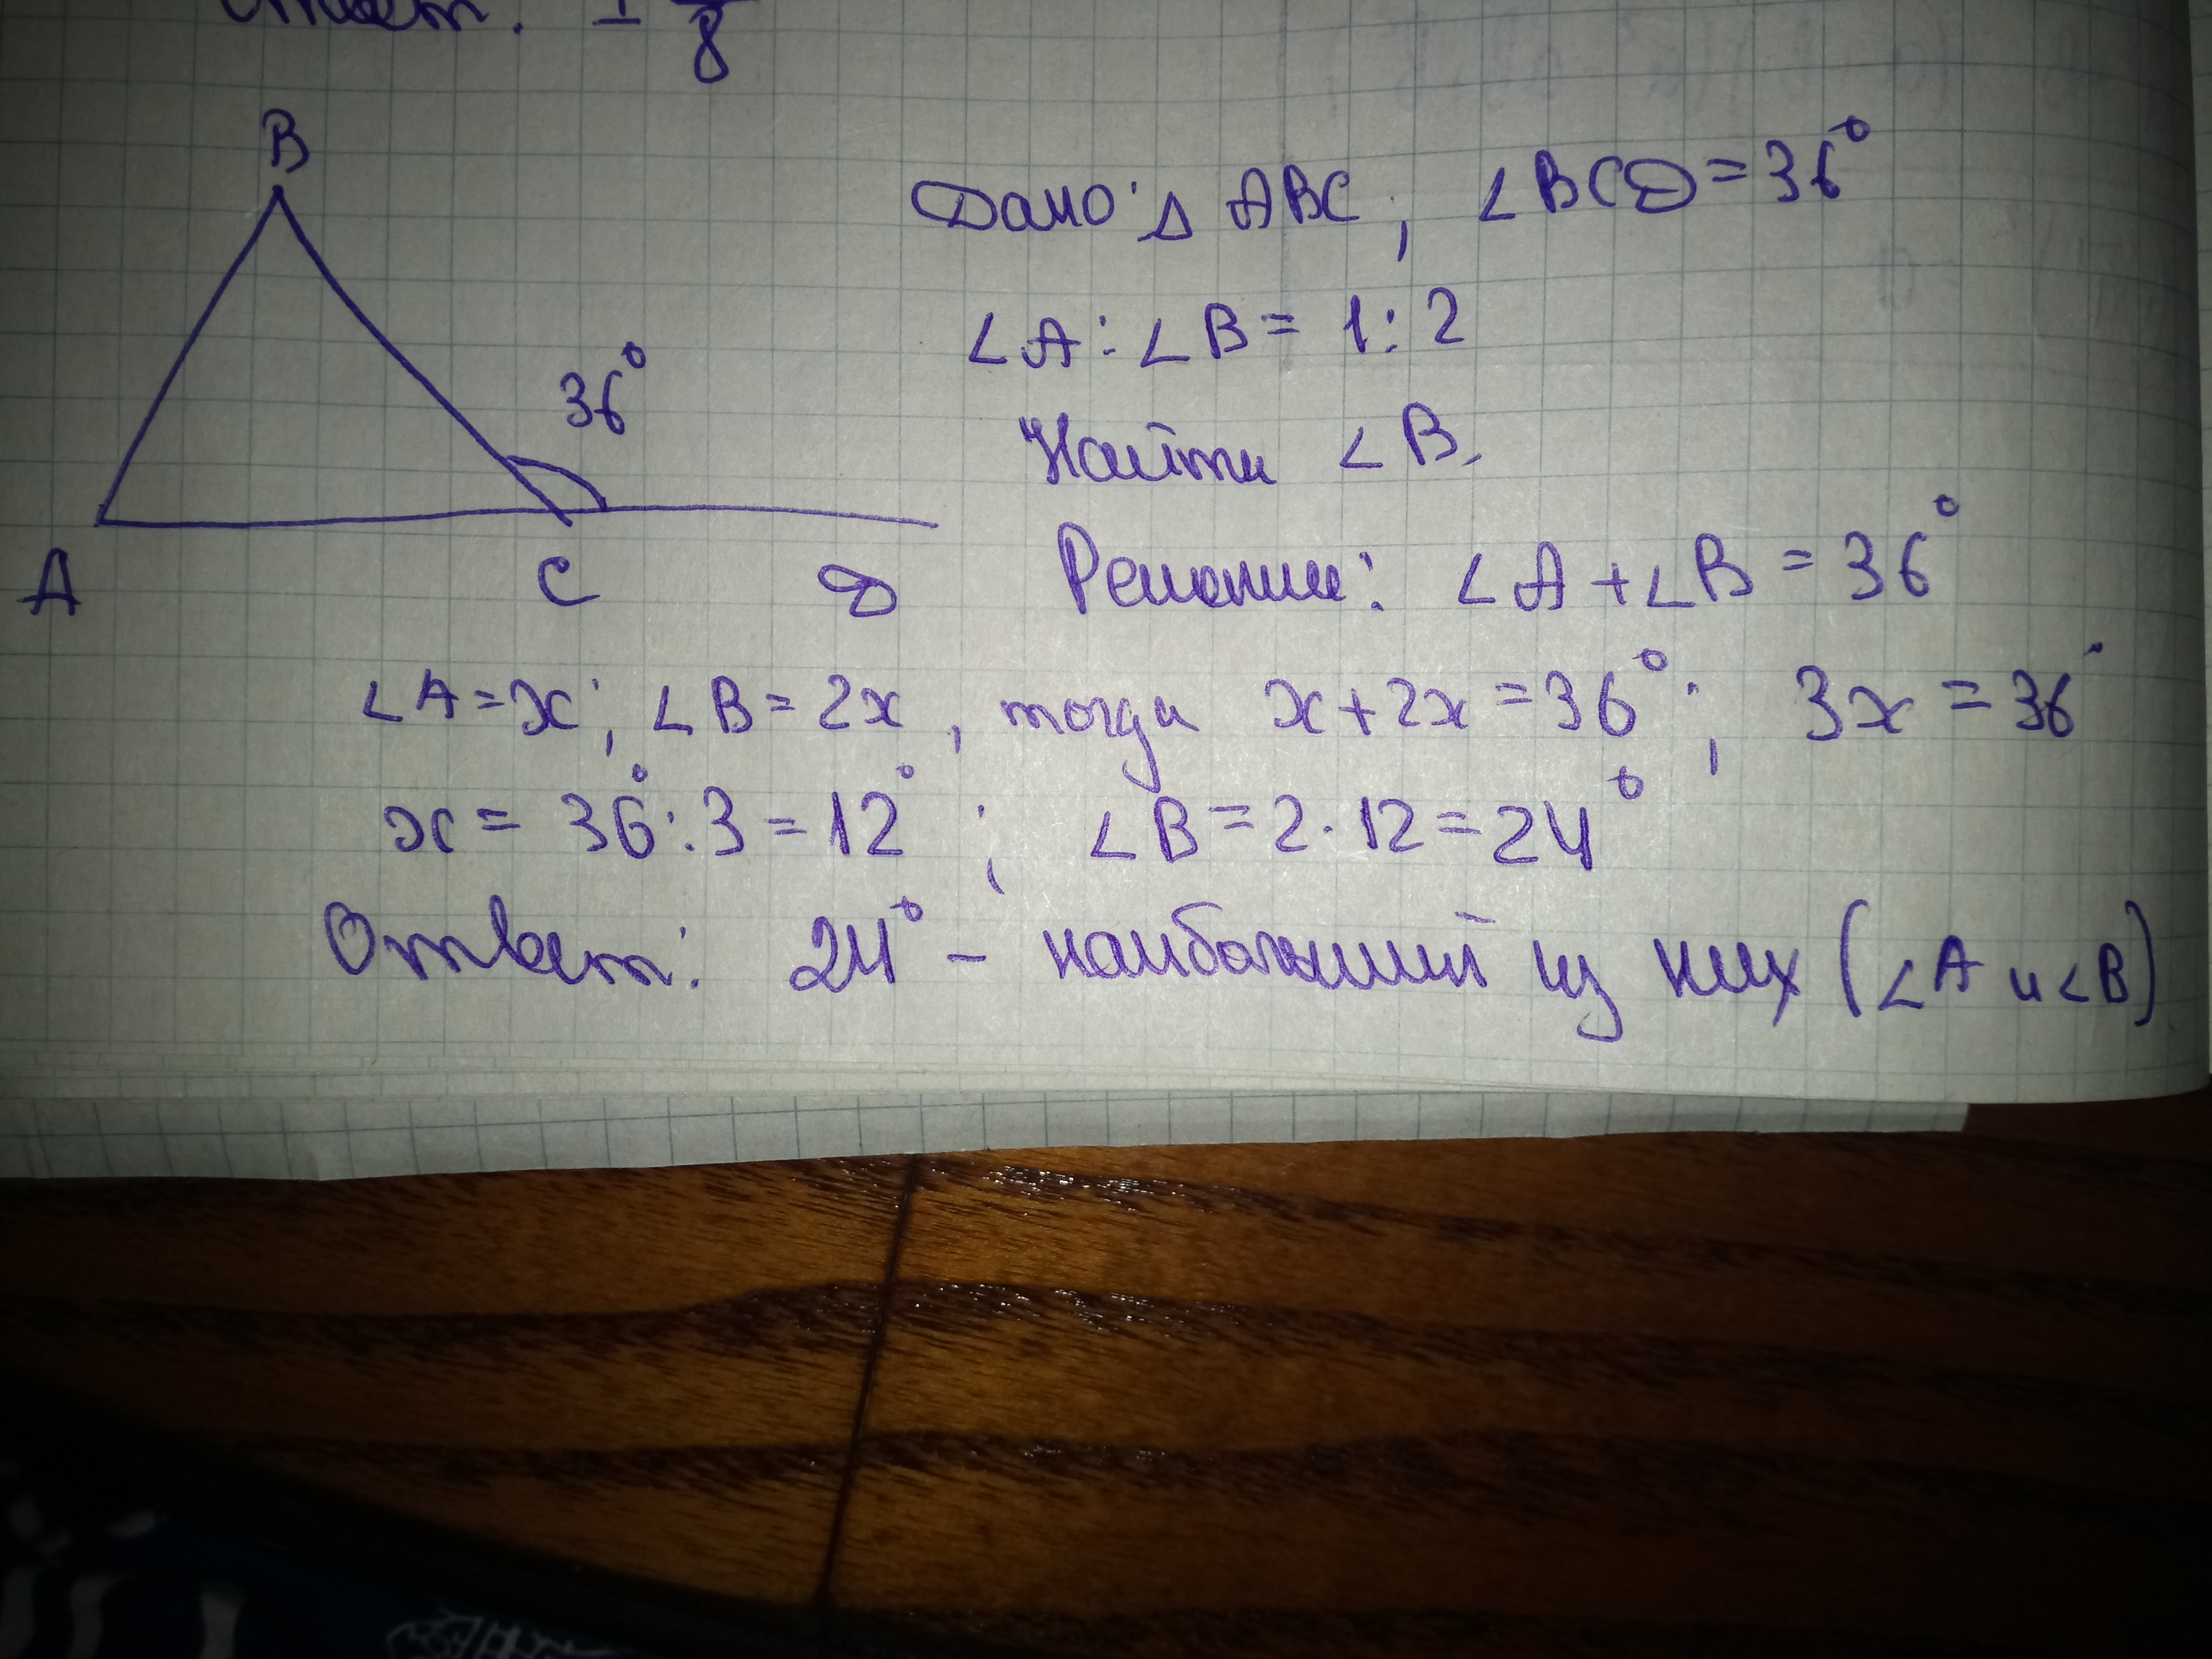 Ответ: 1 8
B
Дано: Δ ABC, ∠BCD = 36°
∠A : ∠B = 1 : 2
36°
Найти ∠B.
A C D
Решение: ∠A + ∠B = 36°
∠A = x; ∠B = 2x, тогда x + 2x = 36°; 3x = 36°
x = 36° : 3 = 12°; ∠B = 2 · 12 = 24°
Ответ: 24° – наибольший из них (∠A и ∠B)